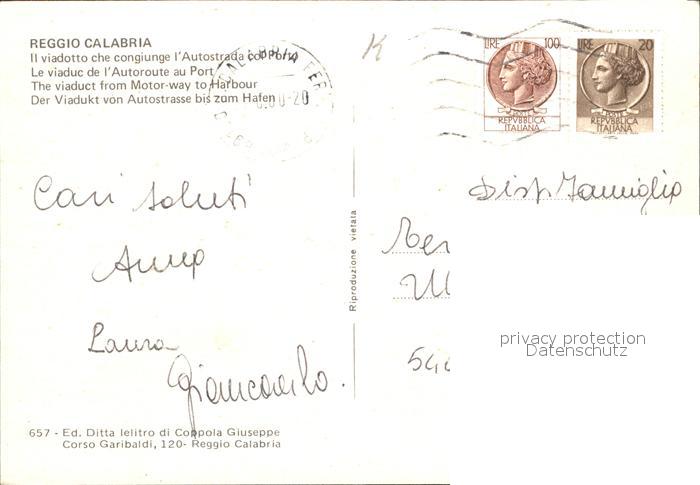 REGGIO CALABRIA
Il viadotto che congiunge l'Autostrada col Porto
Le viaduc de l'Autoroute au Port
The viaduct from Motor-way to Harbour
Der Viadukt von Autostrasse bis zum Hafen
K
LIRE 100
POSTE
REPVBBLICA
ITALIANA
LIRE 20
POSTE
REPVBBLICA
ITALIANA
Cari saluti
Anna
Laura
Giancarlo.
Riproduzione vietata
Famiglia
privacy protection
Datenschutz
657 - Ed. Ditta Ielitro di Coppola Giuseppe
Corso Garibaldi, 120- Reggio Calabria